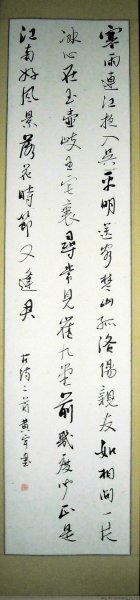 寒雨連江夜入吳平明送客楚山孤洛陽親友如相問一片
冰心在玉壺岐王宅裏尋常見崔九堂前幾度聞正是
江南好風景落花時節又逢君
古詩二首黃